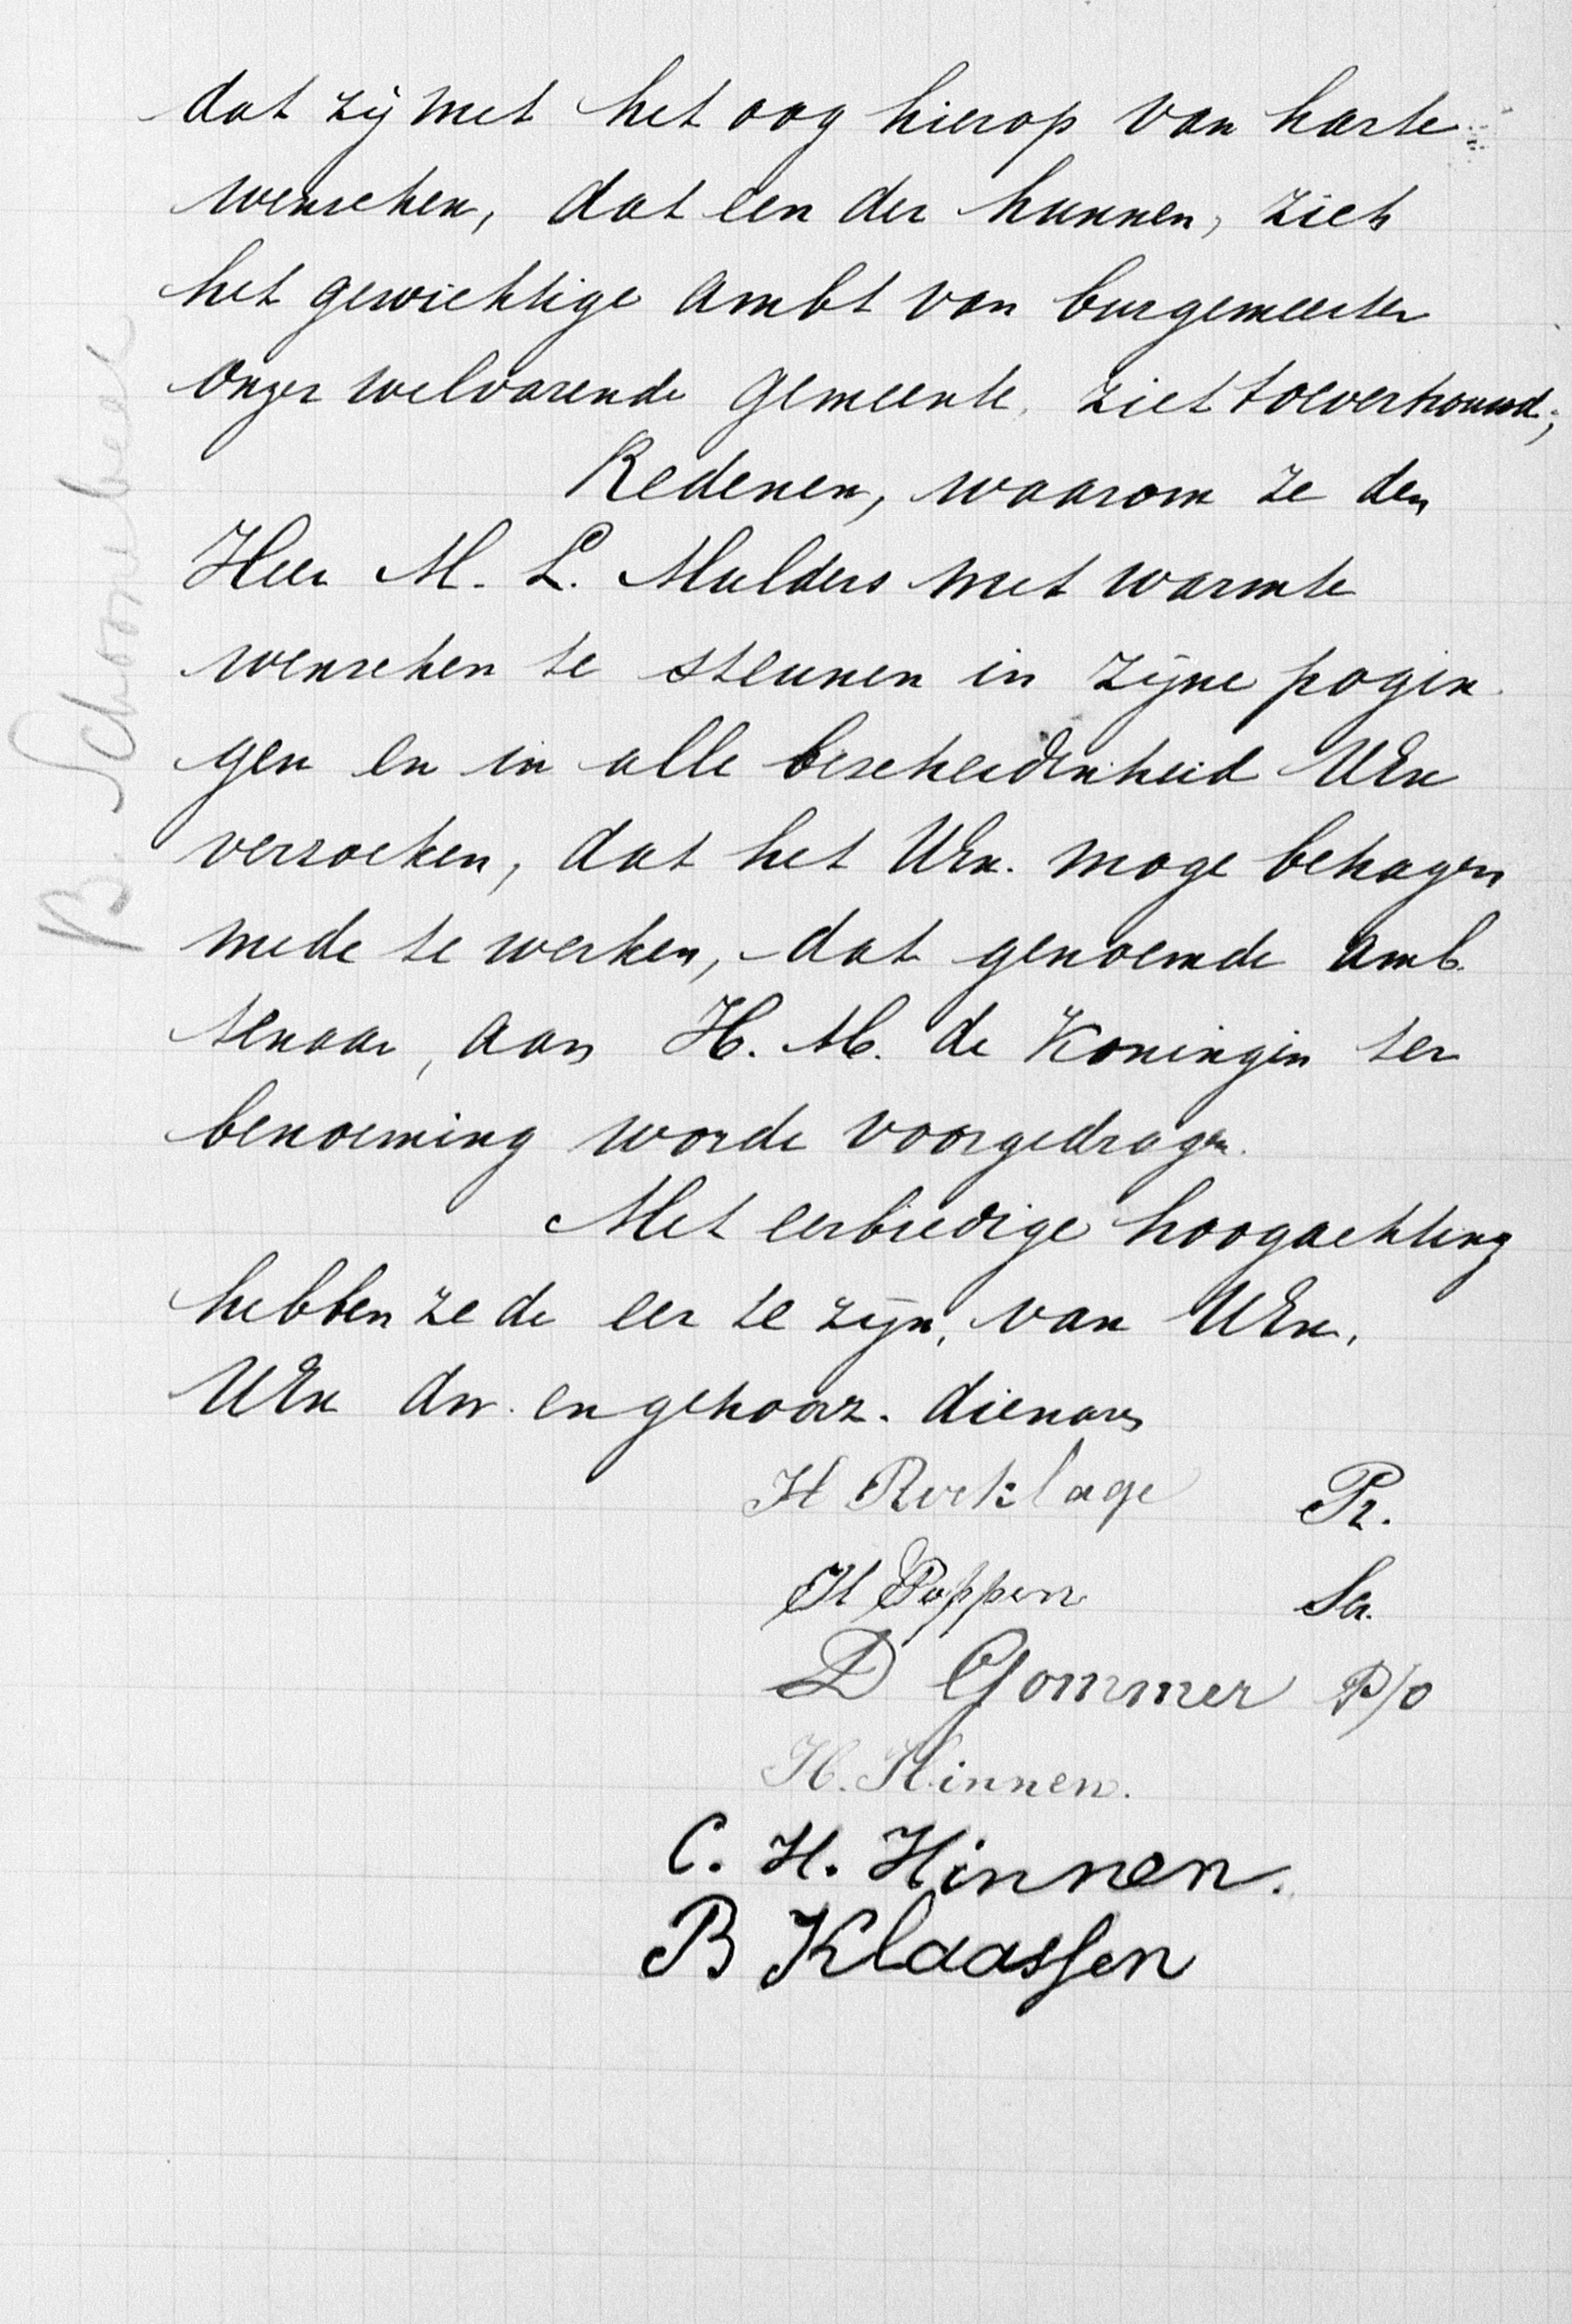 dat zij met het oog hierop van harte
wenschen, dat een der hunnen, zich
het gewichtige ambt van burgemeester
onzer welvarende gemeente, ziet toevertrouwd;
Redenen, waarom ze den
Heer M. L. Mulders met warmte
wenschen te steunen in zijne pogin
gen en in alle bescheidenheid UEn
verzoeken, dat het UEn. moge behagen
mede te werken, dat genoemde amb
tenaar, aan H. M. de Koningin ter
benoeming worde voorgedragen.
Met eerbiedige hoogachting
hebben ze de eer te zijn, van UEn.
UEn dw. en gehoorz. dienaars
H Rocklage Pr.
H Poppen Scr.
D Gommer P/o
H. Hinnen.
C. H. Hinnen.
B Klaassen
B. Schoonbeek